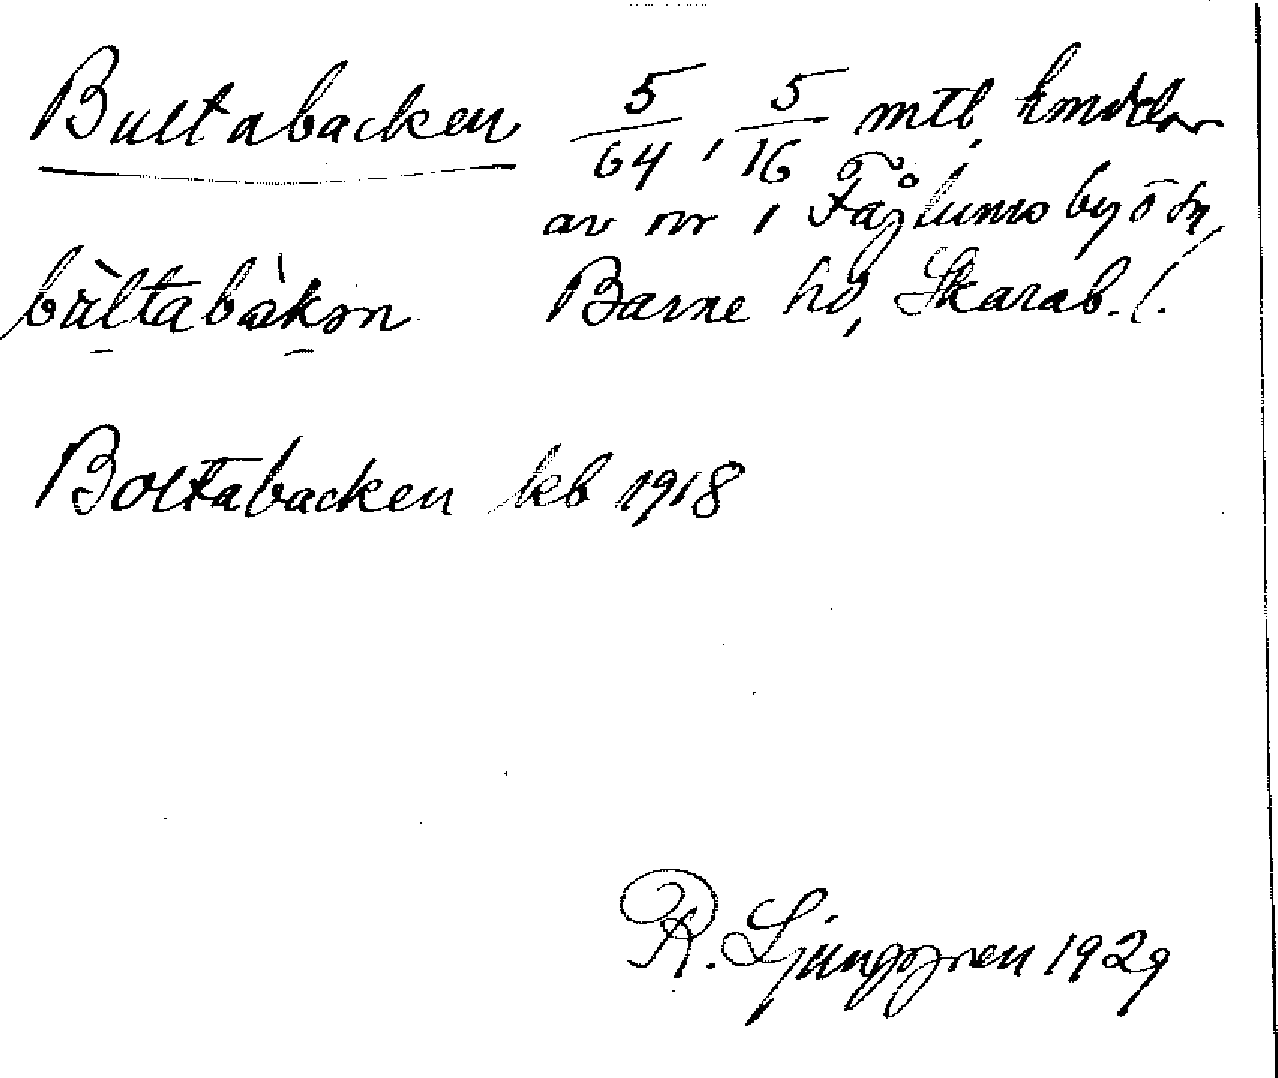 Bultabacken 5/64, 5/16 mtl.
av nr 1 Fåglums by o sn,
bùltabàkən Barne hd, Skarab. l.
Boltabacken kb 1918
R. Ljunggren 1929